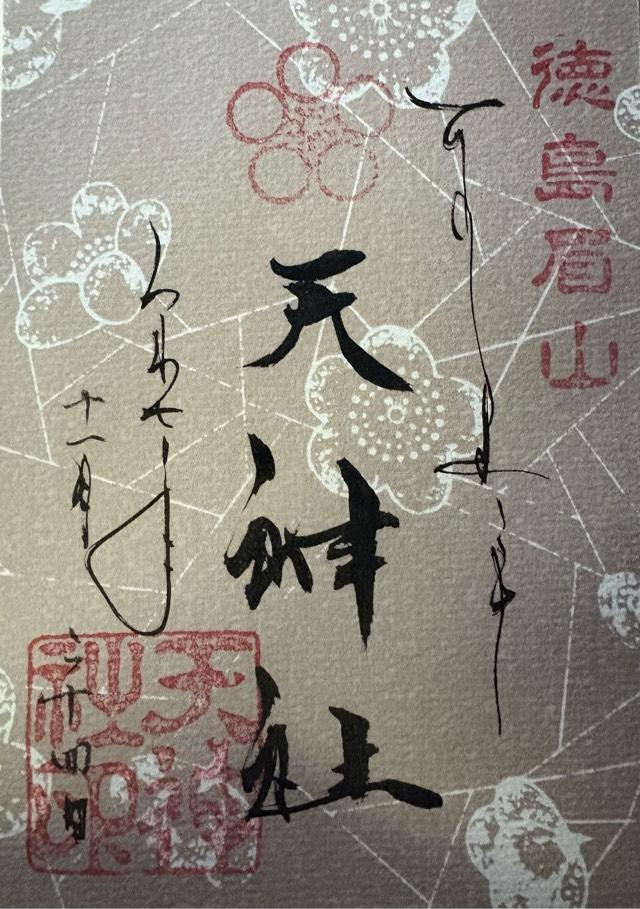 徳島眉山
天神社
令和七年
十一月二十四日
天神
社印